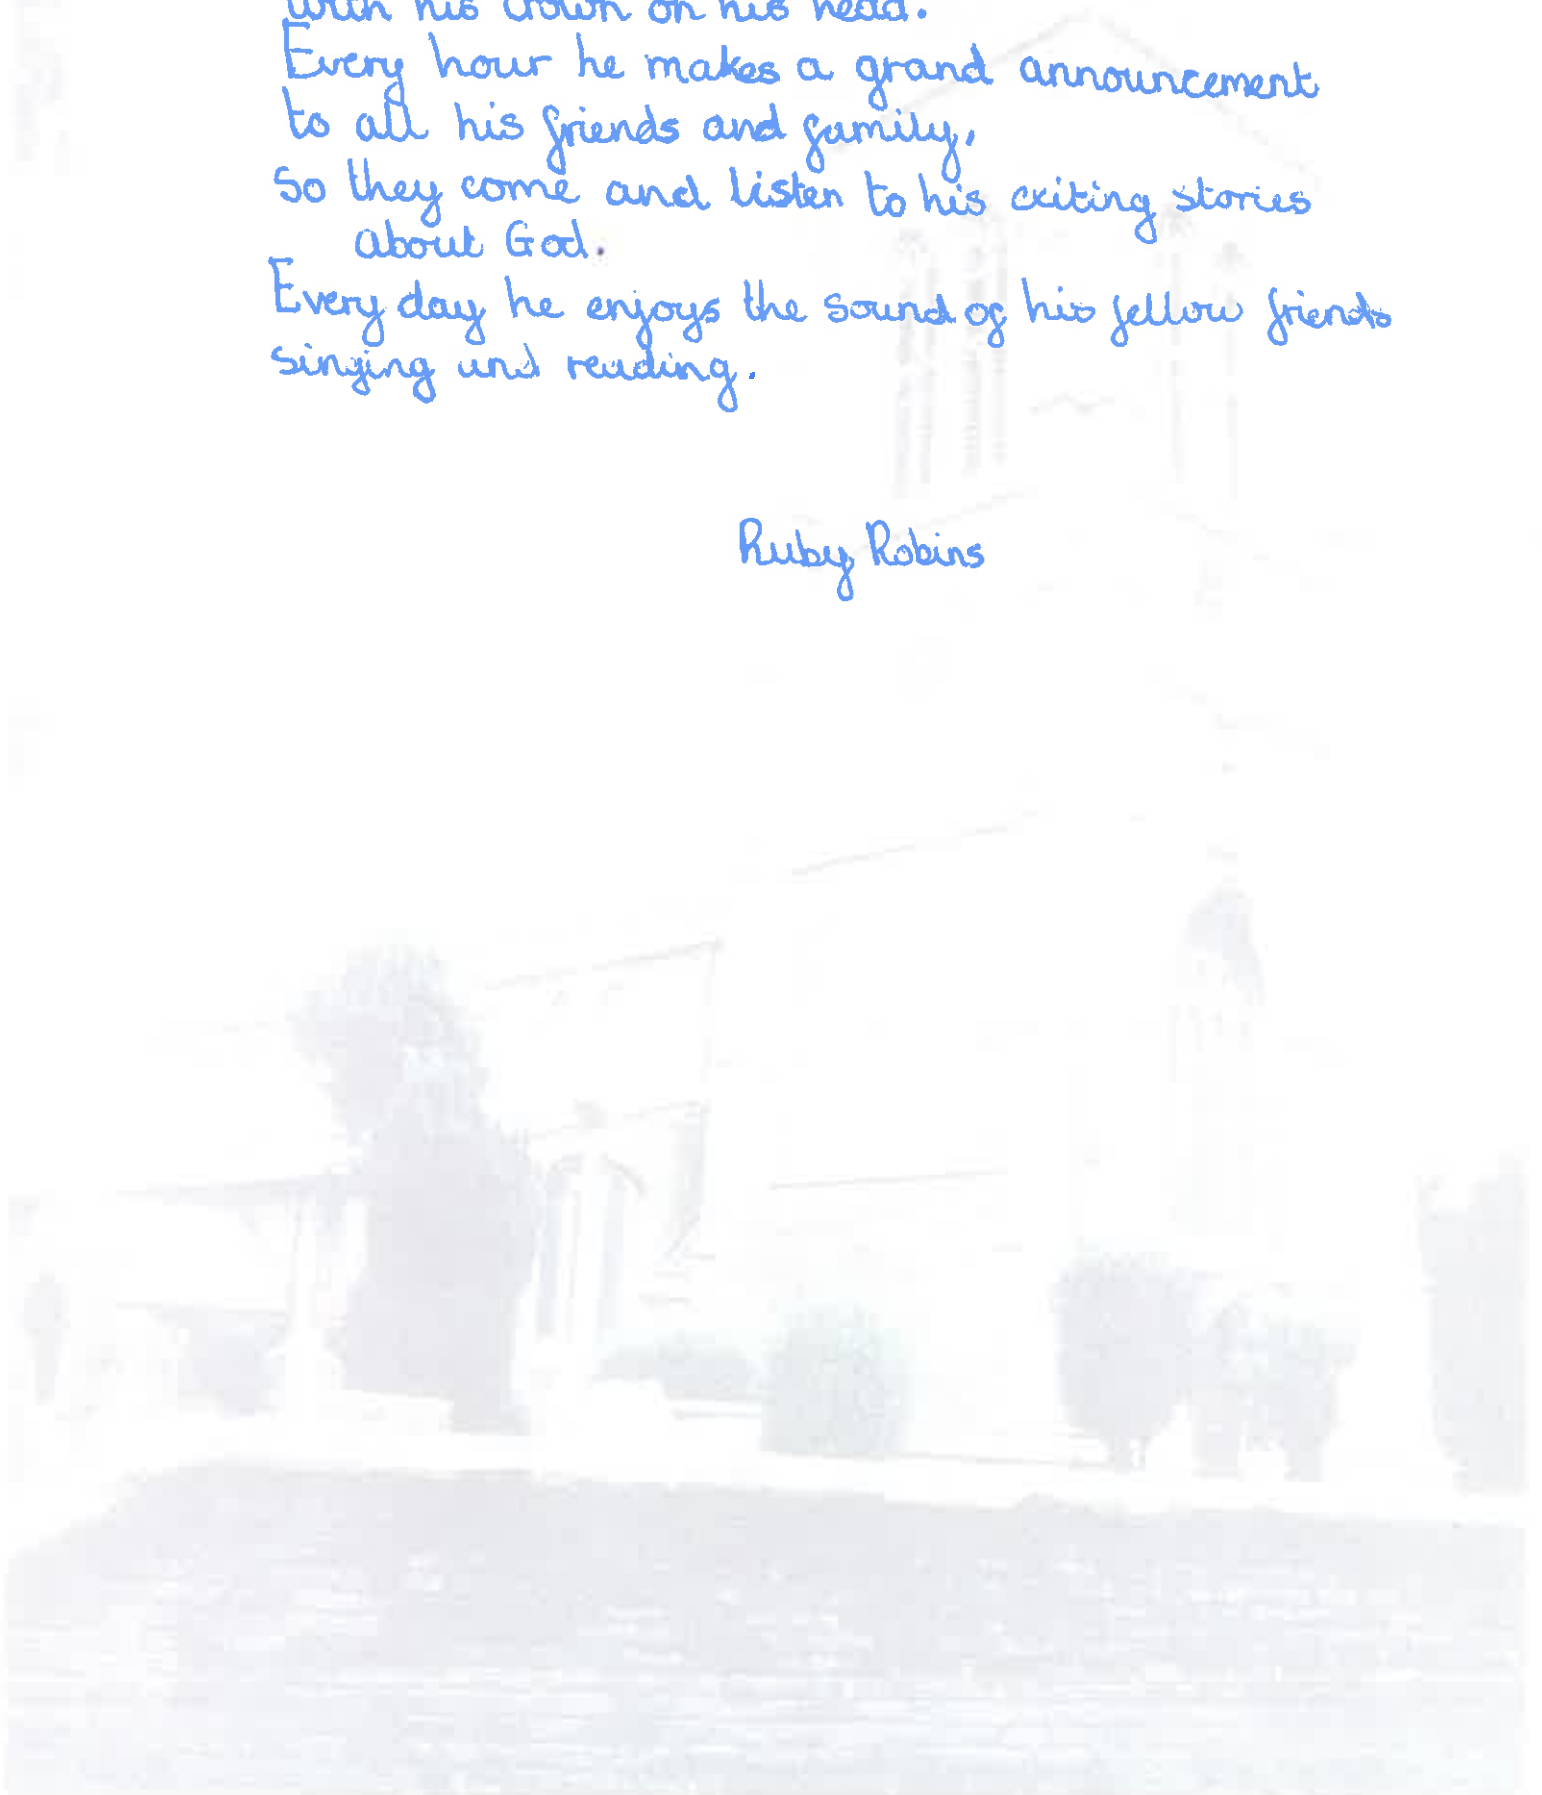 with his crown on his head.
Every hour he makes a grand announcement
to all his friends and family,
so they come and listen to his exiting stories
about God.
Every day he enjoys the sound of his fellow friends
singing and reading.
Ruby Robins